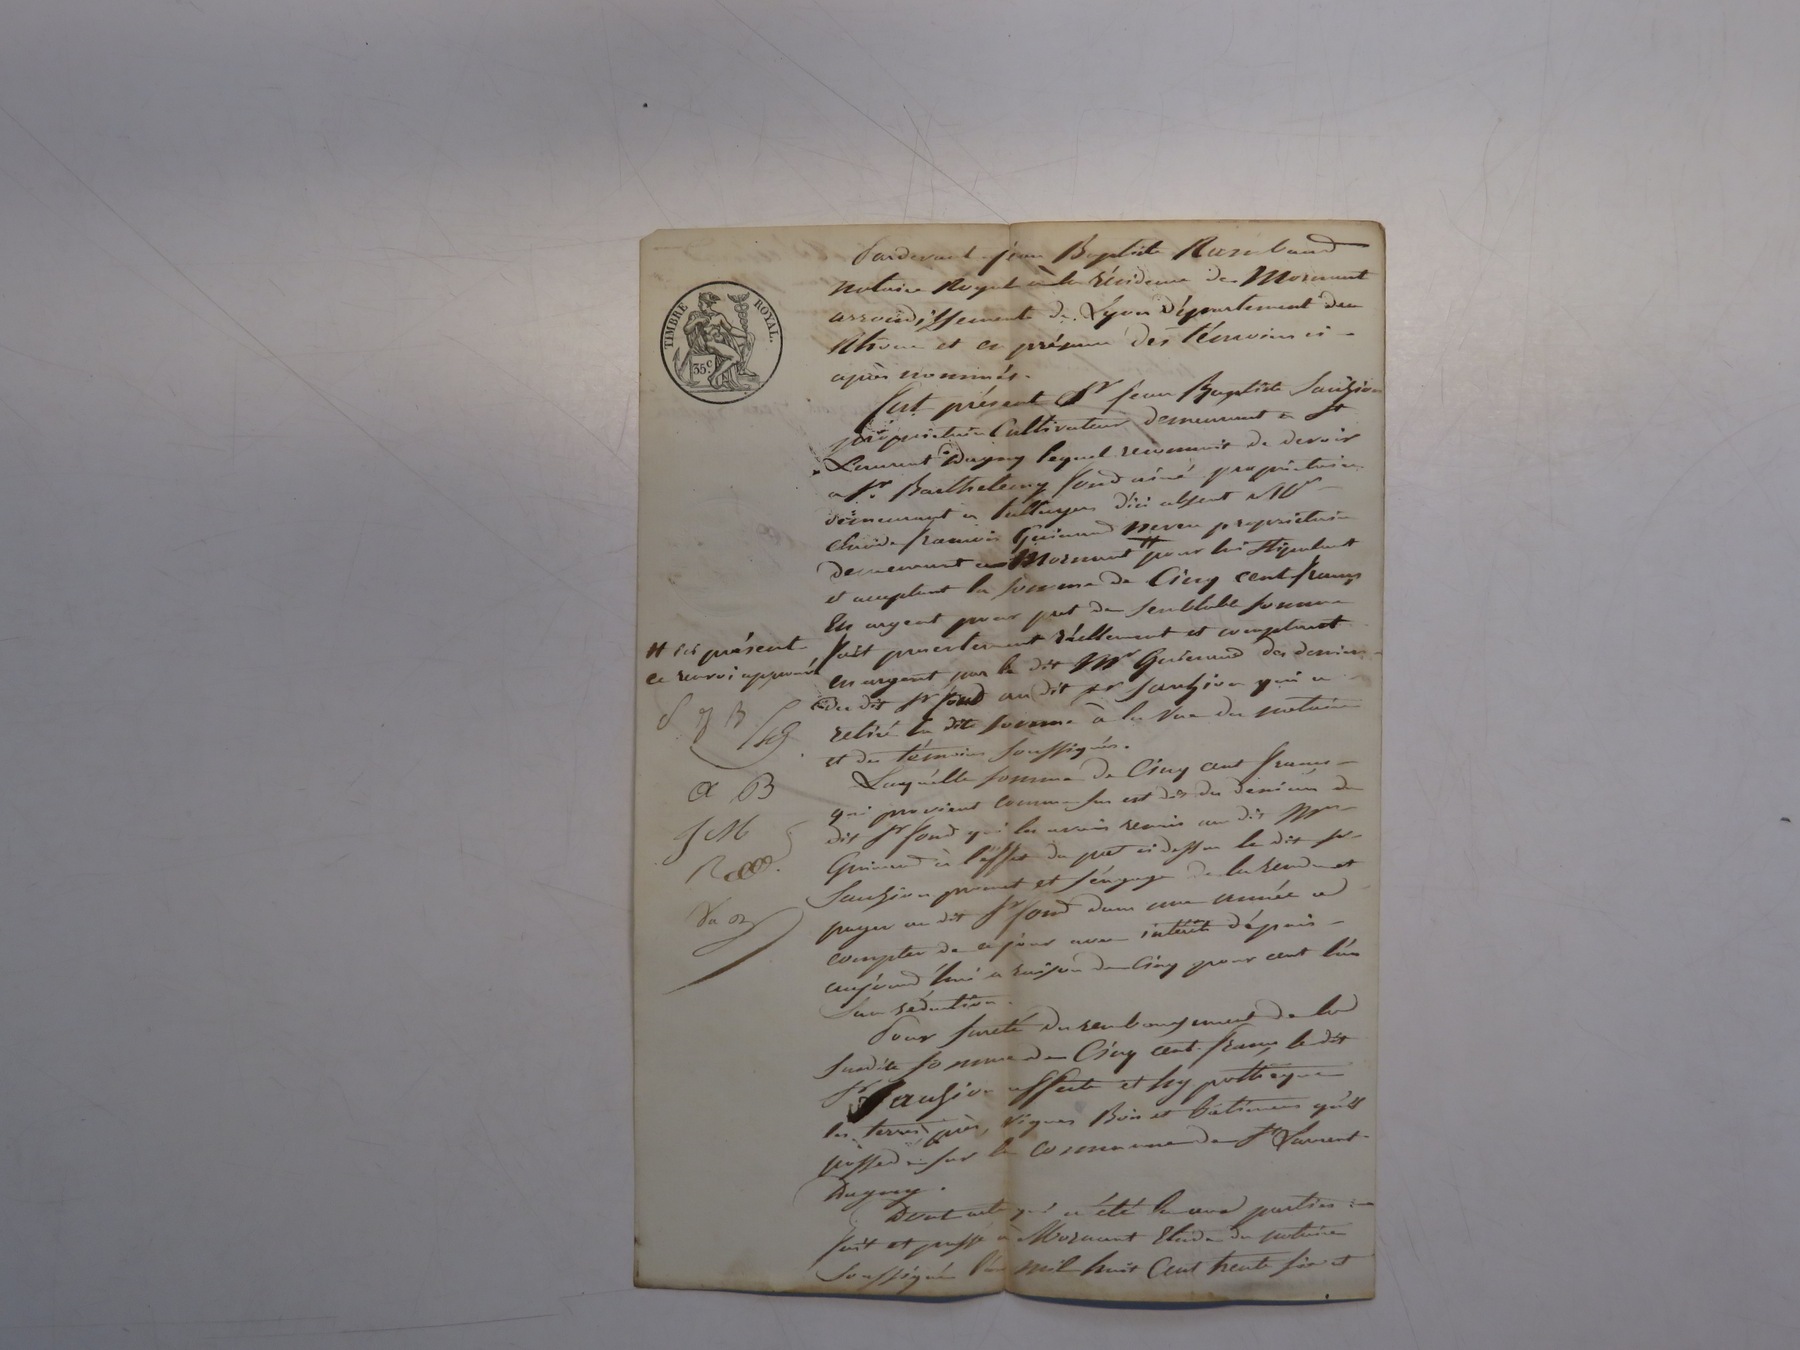 TIMBRE ROYAL.
35c
Pardevant Jean Baptiste
Notaire Royal à la résidence de Mornant
arrondissement de Lyon Département du
Rhone et en présence des témoins ci-
après nommés.
Est présent Sr Jean Baptiste Sauzion
propriétaire Cultivateur demeurant a St
Laurent Dagny lequel reconnait de devoir
a Sr Barthelemy fond ainé propriétaire
demeurant a d'ici absent Mr
Claude francois Guinand neveu propriétaire
demeurant a Mornant # pour lui stipulant
et acceptant la somme de Cinq cent francs
En argent pour pret de semblable somme
fait presentement réellement et comptant
en argent par le dit Mr Guinand des deniers
du dit Sr fond au dit Sr Sauzion qui a
retiré la dite somme à la vue du notaire
et des témoins soussignés.
Laquelle somme de Cinq cent francs
qui provient comme sus est dit des deniers du
dit Sr fond qui les avait remis au dit Mr
Guinand à l'effet du pret ci dessus le dit Sr
Sauzion promet et s'engage de la rendre et
payer au dit Sr fond dans une année a
compter de ce jour avec intérêts dépuis
aujourd'hui a raison de Cinq pour cent l'an
San réduction.
Pour sureté du remboursement de la
susdite somme de Cinq cent francs, le dit
Sr Sauzion affecte et hypotheque
les terres, près, vignes Bois et bâtimens qu'il
possede sur la commune de St Laurent
Dagny.
Dont acte qui a été lu aux parties
fait et passé à Mornant Etude du notaire
soussigné l'an mil huit Cent trente six et
# ici présent
ce renvoi approuvé
S J B
a B
J M